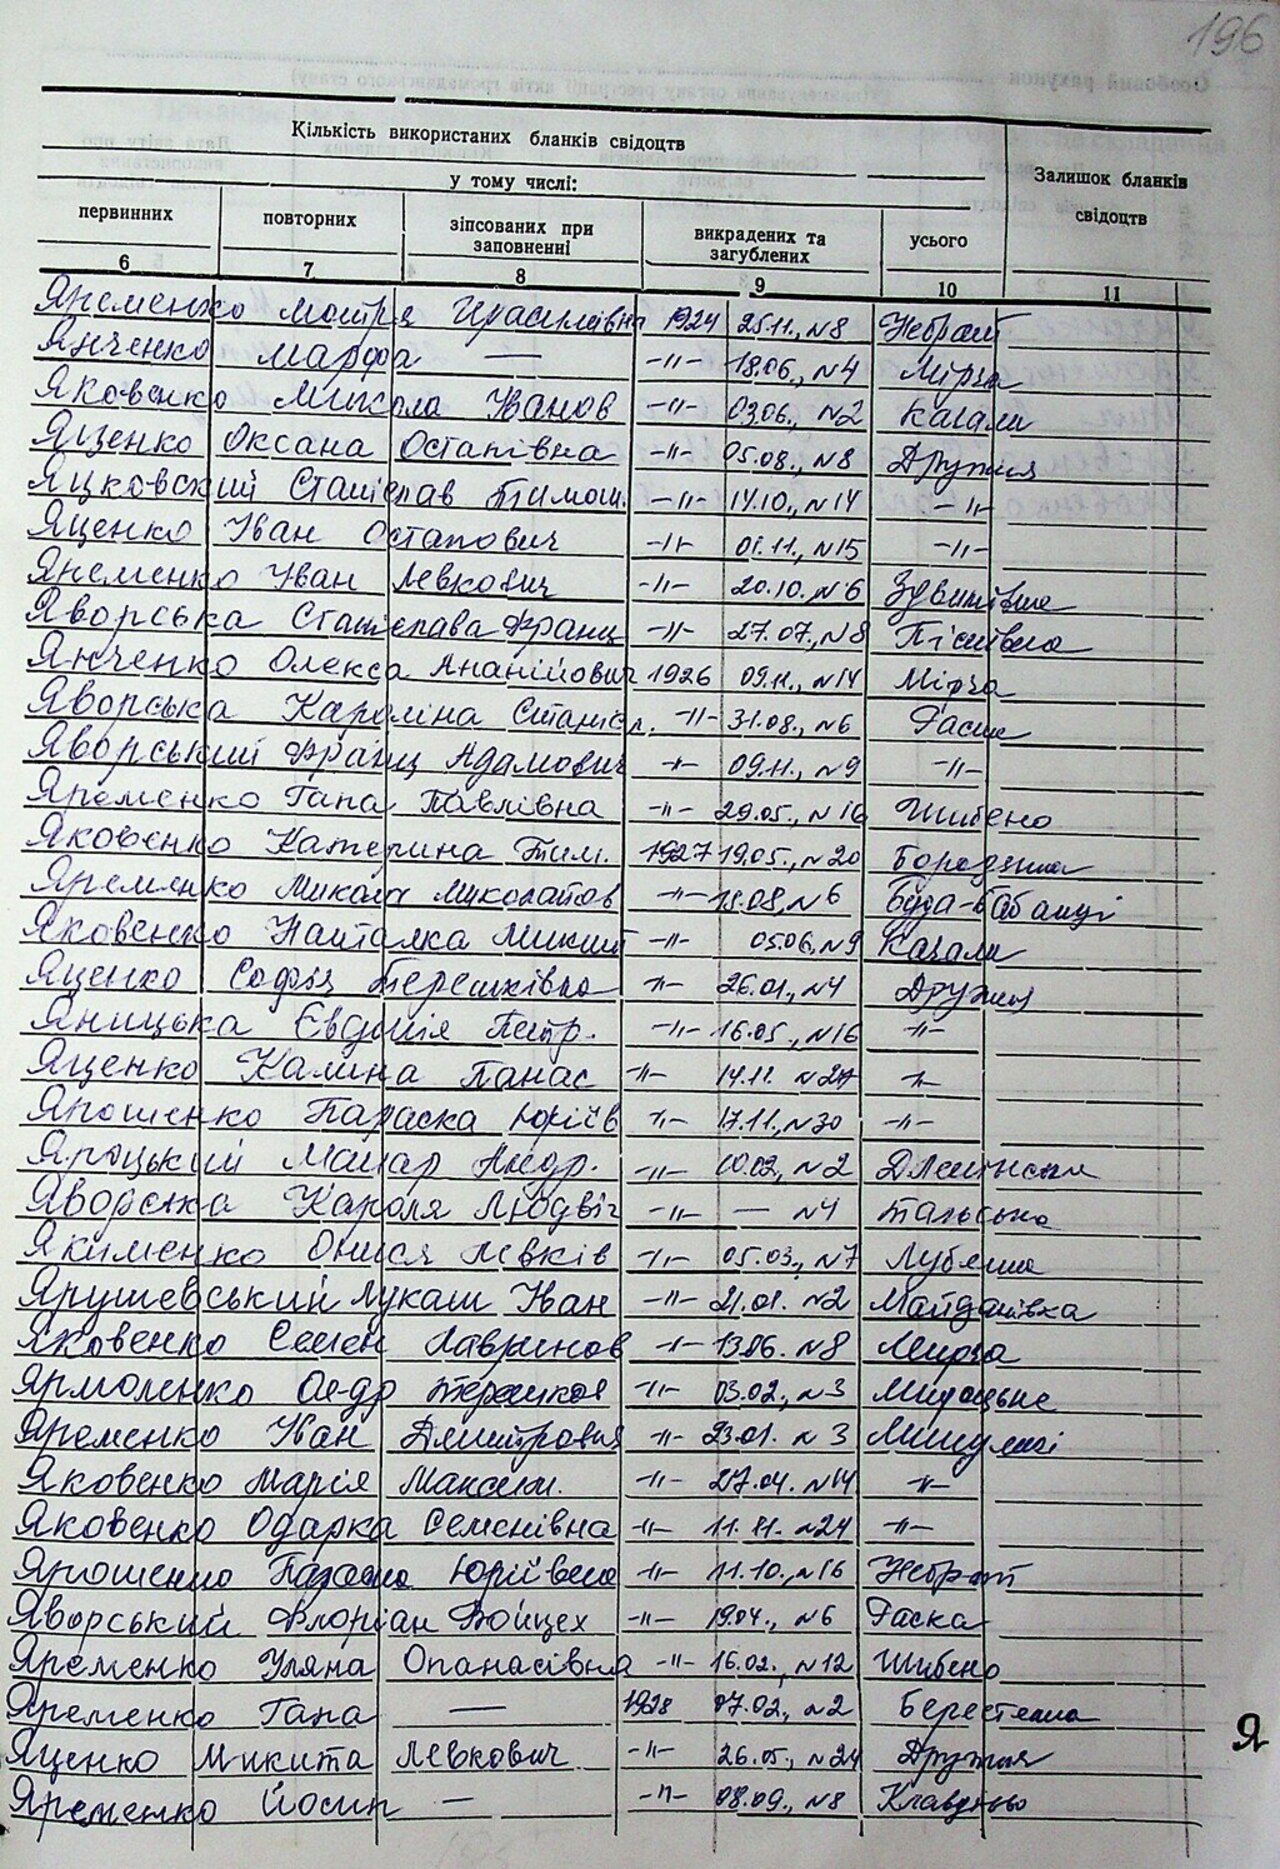 196
Кількість використаних бланків свідоцтв
у тому числі:
Залишок бланків свідоцтв
первинних повторних зіпсованих при заповненні викрадених та загублених усього
6 7 8 9 10 11
Яременко Мотря 1924 25.11., №8 Небрат
Янченко Марфа — -"- 18.06., №4 Мірча
Яковенко Микола Іванов -"- 03.06., №2 Качали
Яценко Оксана Остапівна -"- 05.08., №8 Дружня
Яцковский Станіслав Тимош. -"- 14.10., №14 -"-
Яценко Іван Остапович -"- 01.11., №15 -"-
Яременко Іван Левкович -"- 20.10. №6 Здвижівка
Яворська Станіслава Франц -"- 27.07., №8 Пісківка
Янченко Олекса Ананійович 1926 09.11., №14 Мірча
Яворська Кароліна Станісл. -"- 31.08., №6 Раска
Яворський Франц Адамович -"- 09.11., №9 -"-
Яременко Гапа Павлівна -"- 29.05., №16 Шибено
Яковенко Катерина Тим. 1927 19.05., №20 Бородянка
Яременко Микола Миколайов -"- 18.08, №6 Буда-Бабинці
Яковенко Наталка Микит -"- 05.06, №9 Качали
Яценко Софія Терешківна -"- 26.01., №4 Дружня
Яницька Євдокія Петр. -"- 16.05., №16 -"-
Яценко Калина Панас -"- 14.11. №27 -"-
Ярошенко Параска Юріїв -"- 17.11., №30 -"-
Яроцький Макар Андр. -"- 10.02, №2
Яворська Кароля Людвіг -"- — №4 Тальська
Якименко Онися Левків -"- 05.03., №7 Лубянка
Ярушевський Лукаш Іван -"- 21.01. №2 Майданівка
Яковенко Семен Лавринов -"- 13.06. №8 Мирча
Ярмоленко Ол-др Терешков -"- 03.02., №3 Мироцьке
Яременко Іван Дмитрович -"- 23.01. №3
Яковенко Марія Максим. -"- 27.04. №14 -"-
Яковенко Одарка Семенівна -"- 11.11. №24 -"-
Ярошенко Параска Юріївна -"- 11.10., №16 Небрат
Яворський Флоріан Войцех -"- 19.04., №6 Раска
Яременко Уляна Опанасівна -"- 16.02., №12 Шибено
Яременко Гапа — 1928 07.02., №2 Берестянка
Яценко Микита Левкович -"- 26.05., №24 Дружня
Яременко Йосип — -"- 08.09., №8 Клавдієво
Я